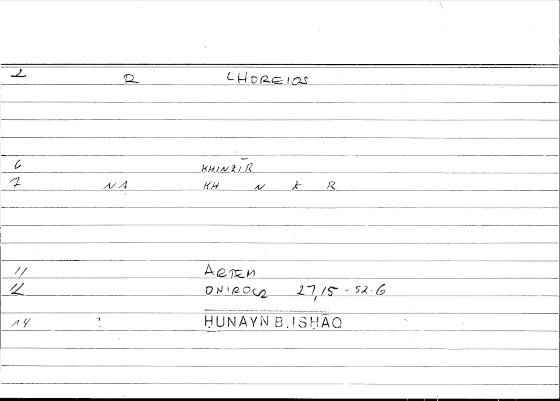 2 R CHOREIOS
6 KHINZĪR
7 NA KH N Z R
11 ARTEM
12 ONIROCR 27,15 - 52.6
14 ? ḤUNAYN B.ISḤĀQ